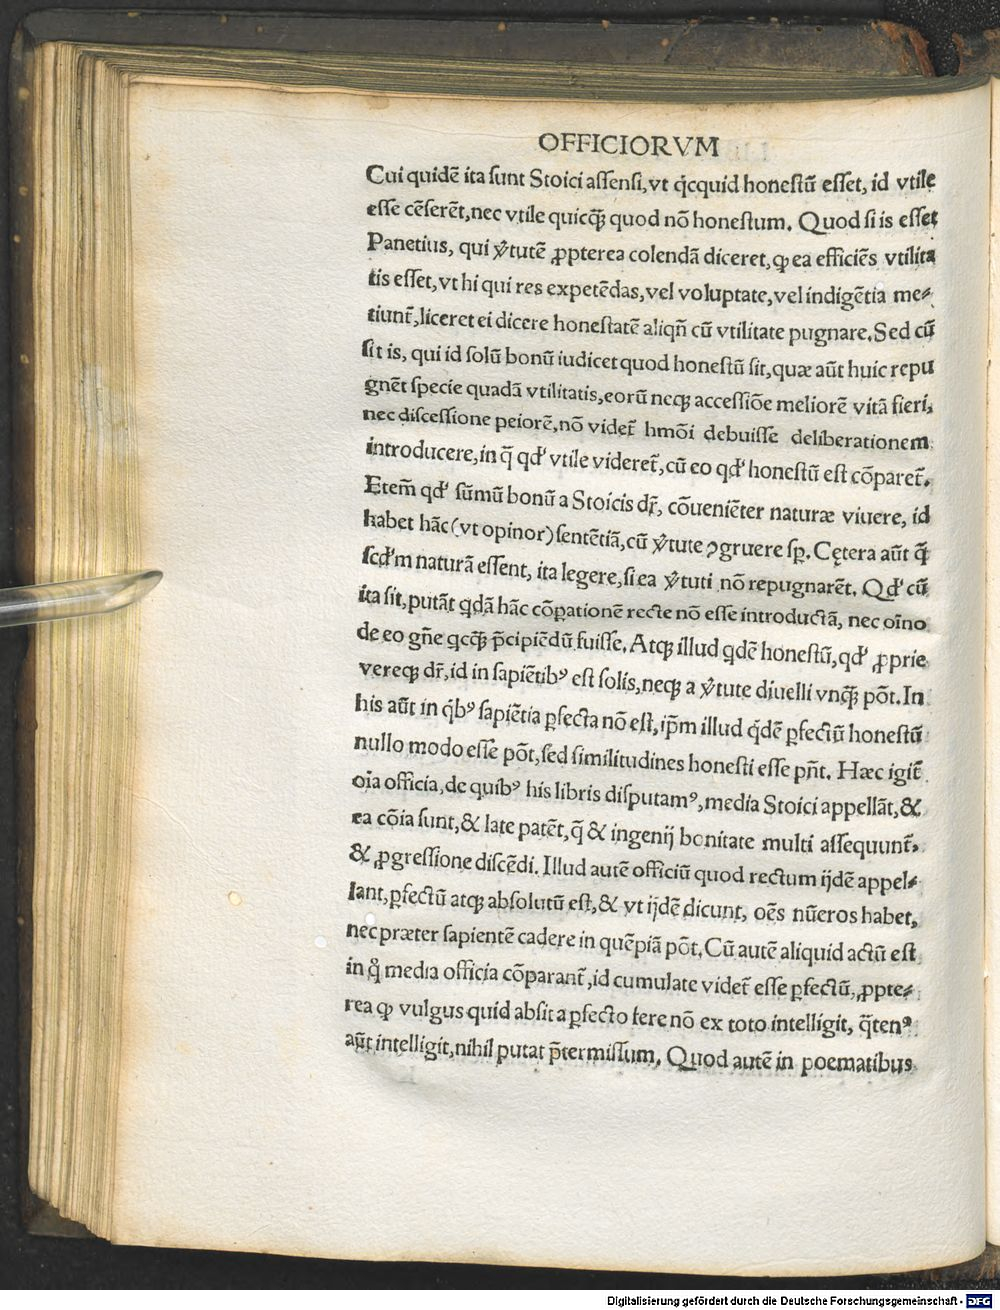 OFFICIORVM
Cui quidē ita sunt Stoici assensi, vt qͥcquid honestū esset, id vtile
esse cēserēt, nec vtile quicqꝫ̄ quod nō honestum. Quod si is esset
Panetius, qui v̓tutē ꝓpterea colendā diceret, ꝙ ea efficiēs vtilita
tis esset, vt hi qui res expetēdas, vel voluptate, vel indigētia me⸗
tiunt̄, liceret ei dicere honestatē aliqn̄ cū vtilitate pugnare. Sed cū
sit is, qui id solū bonū iudicet quod honestū sit, quæ aūt huic repu
gnēt specie quadā vtilitatis, eorū neqꝫ accessiōe meliorē vitā fieri,
nec discessione peiorē, nō videt̄ hmōi debuisse deliberationem
introducere, in q̄ qd̓ vtile videret̄, cū eo qd̓ honestū est cōparet̄.
Etem̄ qd̓ sūmū bonū a Stoicis dr̄, cōueniēter naturæ viuere, id
habet hāc (vt opinor) sentētiā, cū v̓tute ꝯgruere sꝑ. Cętera aūt q̄
scd̓m naturā essent, ita legere, si ea v̓tuti nō repugnarēt. Qd̓ cū
ita sit, putāt qͥdā hāc cōpationē recte nō esse introductā, nec oīno
de eo gn̄e qͥcqꝫ̄ p̄cipiēdū fuisse. Atqꝫ illud qͥdē honestū, qd̓ ꝓprie
vereqꝫ dr̄, id in sapiētibꝰ est solis, neqꝫ a v̓tute diuelli vnqꝫ̄ pōt. In
his aūt in qͥbꝰ sapiētia ꝑfecta nō est, ip̄m illud qͥdē ꝑfectū honestū
nullo modo esse pōt, sed similitudines honesti esse pn̄t. Hæc igit̄
oīa officia, de quibꝰ his libris disputamꝰ, media Stoici appellāt, &
ea cōia sunt, & late patēt, q̄ & ingenij bonitate multi assequunt̄,
& ꝓgressione discēdi. Illud autē officiū quod rectum ijdē appel⸗
lant, ꝑfectū atqꝫ absolutū est, & vt ijdē dicunt, oēs nūeros habet,
nec præter sapientē cadere in quēpiā pōt. Cū autē aliquid actū est
in qͦ media officia cōparant̄, id cumulate videt̄ esse ꝑfectū, ꝓpte⸗
rea ꝙ vulgus quid absit a ꝑfecto fere nō ex toto intelligit, q̄tenꝰ
aūt intelligit, nihil putat p̄termissum. Quod autē in poematibus
Digitalisierung gefördert durch die Deutsche Forschungsgemeinschaft - DFG